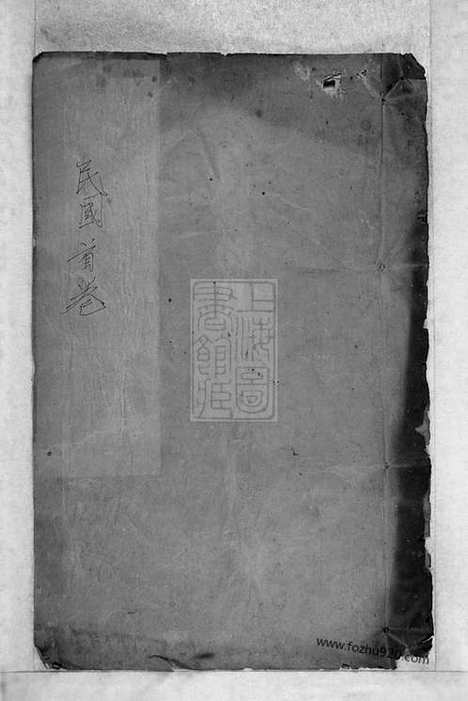 民國首卷
上海圖
書館藏
www.fozhu920.com